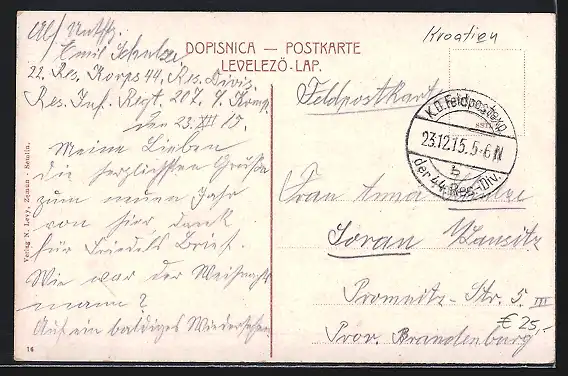 Kroatien
DOPISNICA — POSTKARTE
LEVELEZÖ-LAP.
Uffz.
Emil Schulze
22. Res. Korps 44. Res. Divis.
Res. Inf. Regt. 207. 7. Komp.
den 23. XII 15.
Meine Lieben
die herzlichsten Grüße
zum neuen Jahr
von hier, dank
für Friedels Brief.
Wie war der Weihnachts
mann?
Auf ein baldiges Wiedersehen
Feldpostkarte
K.D. Feldpostexp.
23.12.15. 5-6 N
b
der 44. Res.-Div.
Frau Anna Schulze
Soran N/Lausitz
Promnitz-Str. 5. III
Prov. Brandenburg
€ 25,-
Verlag N. Levy, Zemun - Semlin.
16